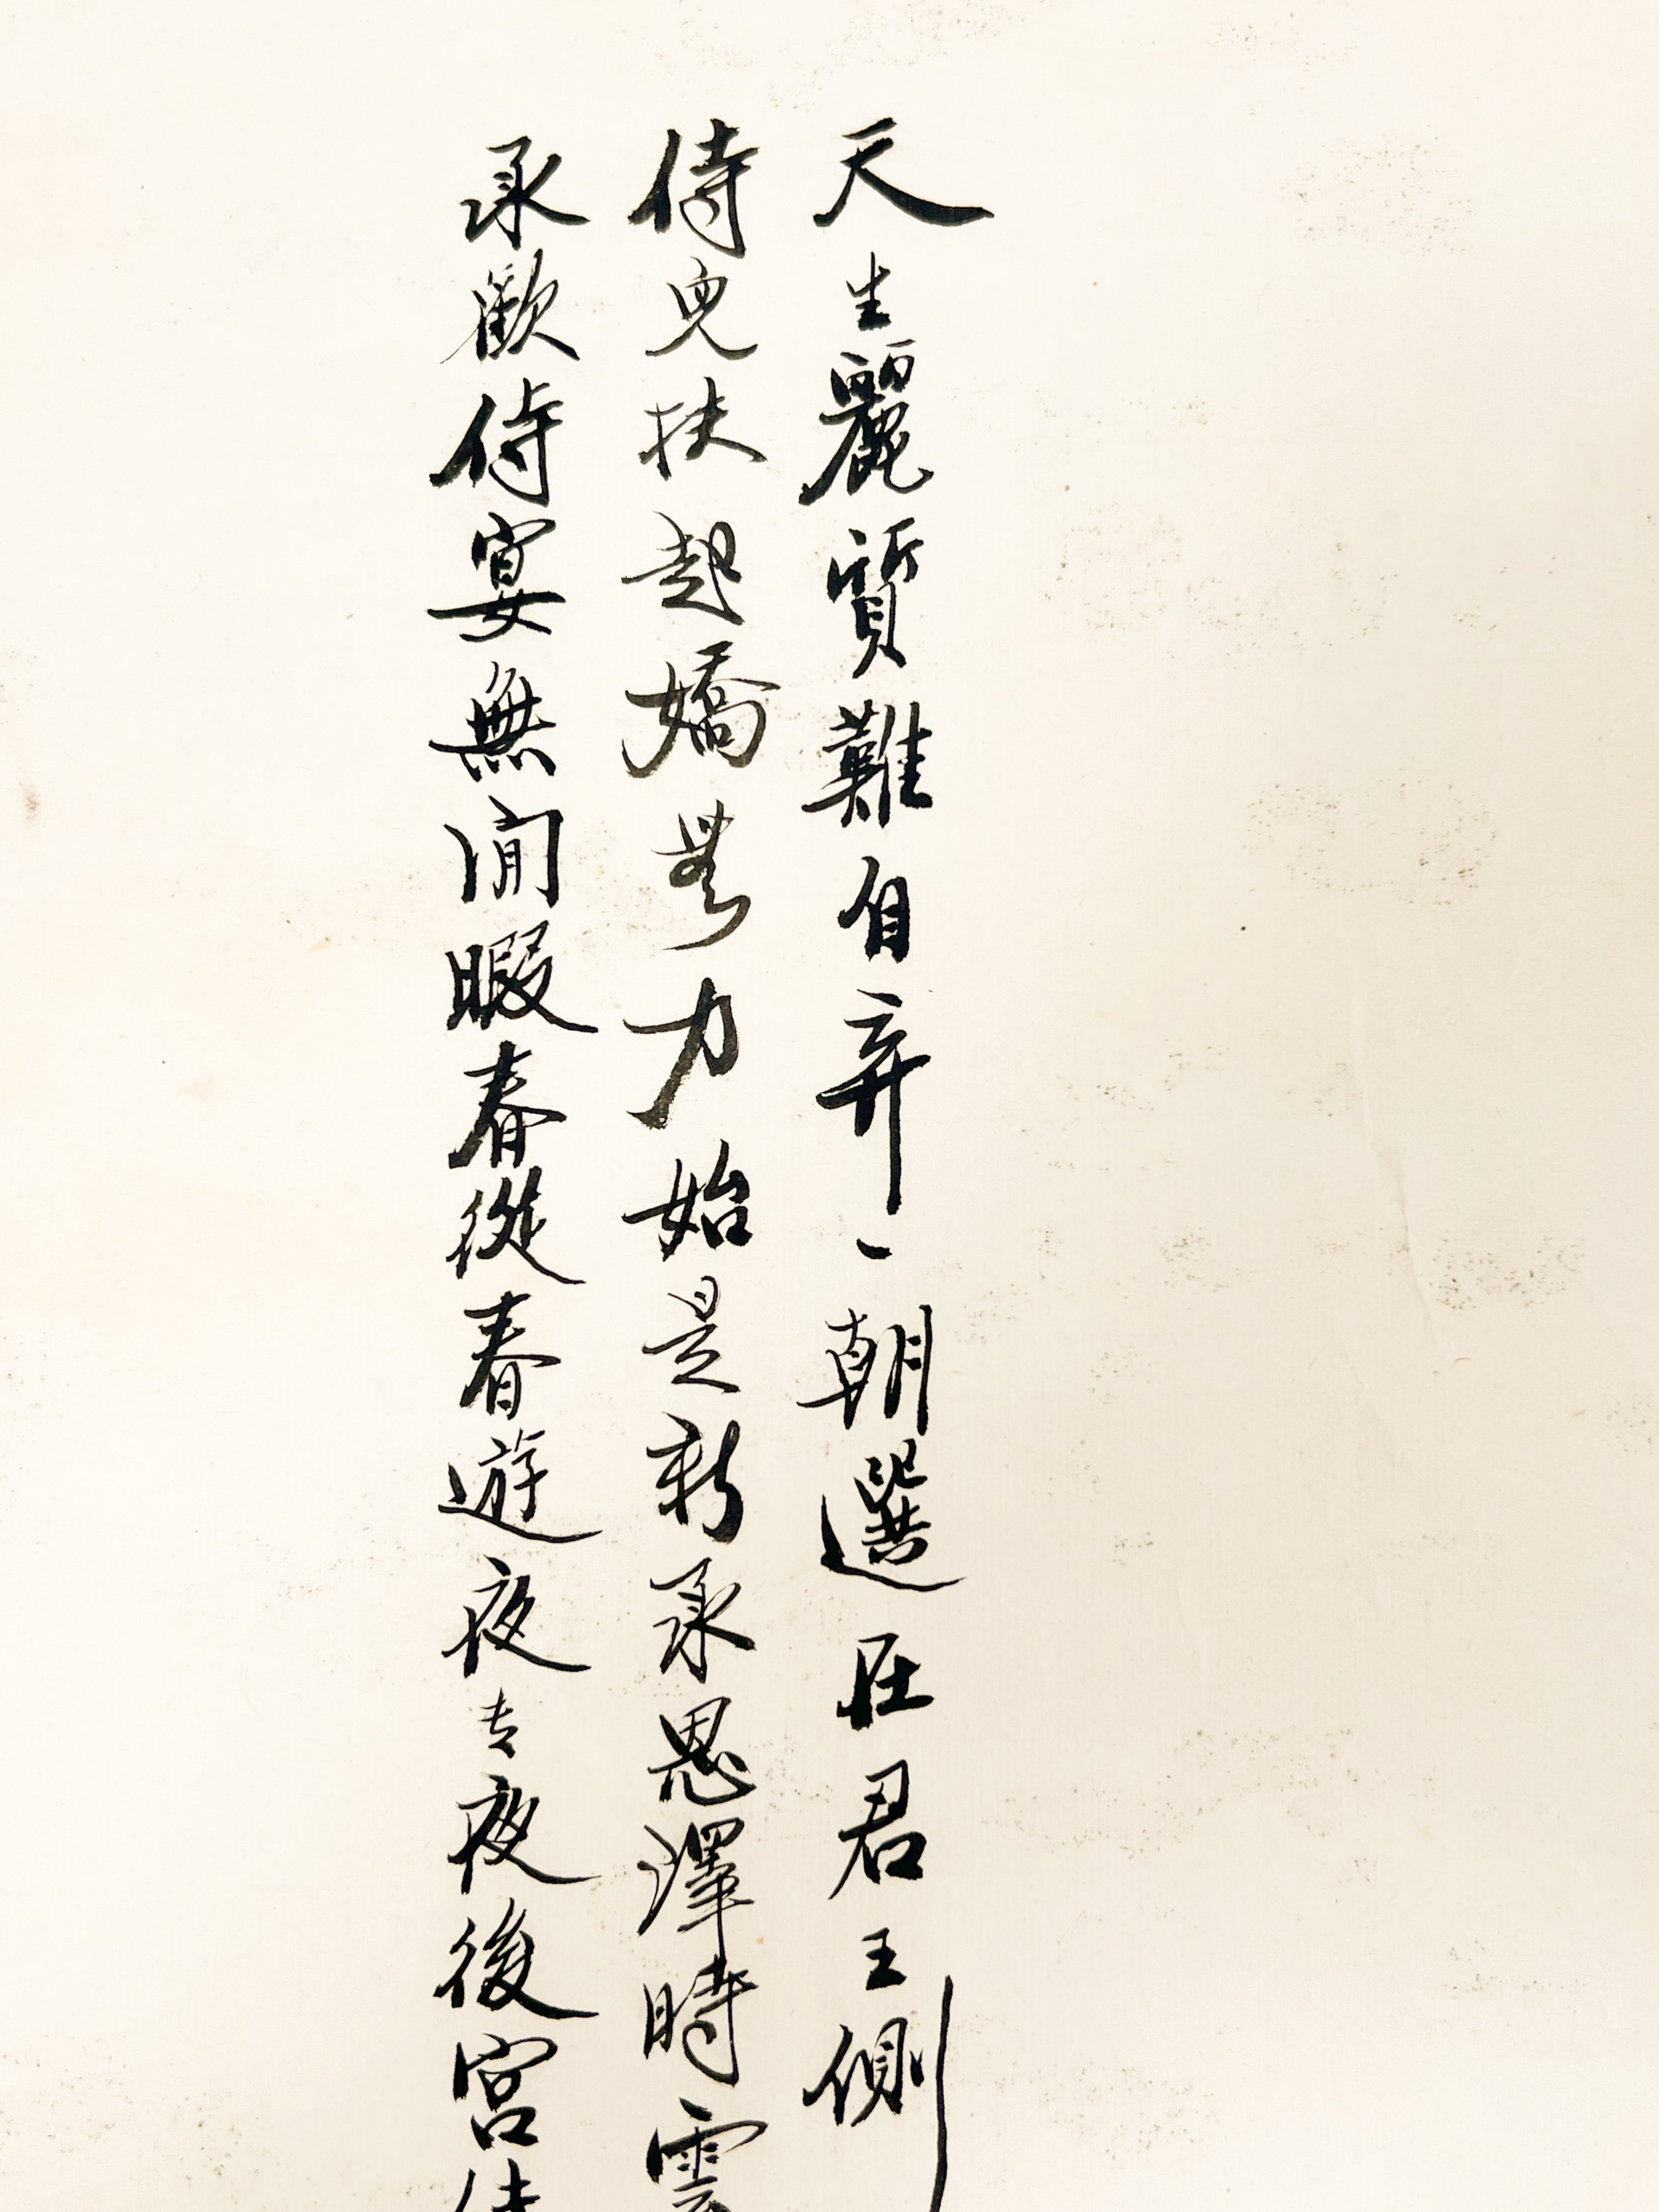 天生麗質難自弃一朝選在君王側
侍兒扶起嬌無力始是新承恩澤時雲
承歡侍宴無閒暇春從春遊夜专夜後宮佳